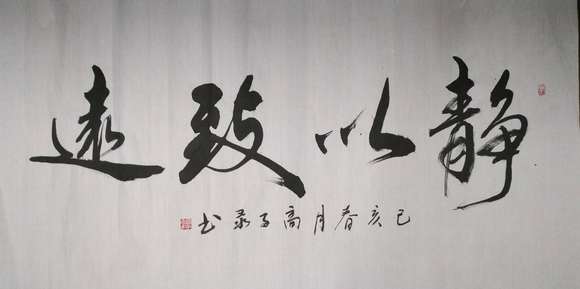 静以致遠
己亥春月高书